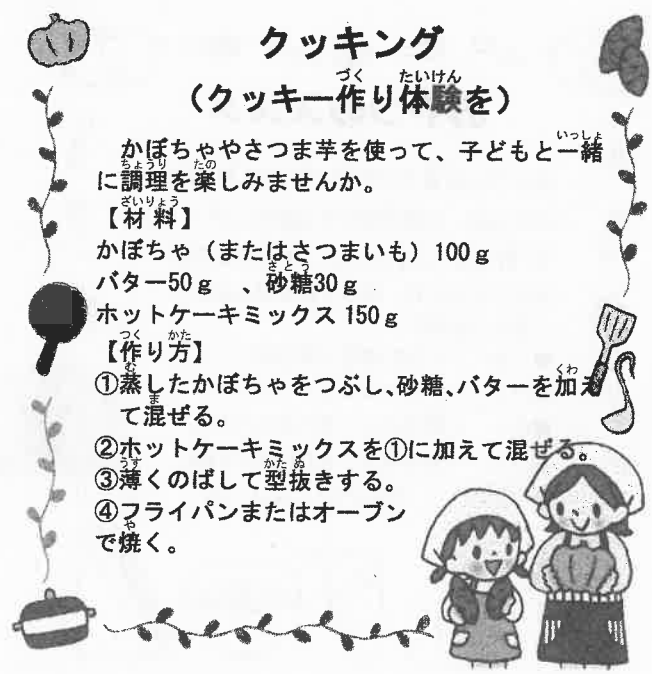 クッキング
（クッキー作り体験を）
かぼちゃやさつま芋を使って、子どもと一緒
に調理を楽しみませんか。
【材料】
かぼちゃ（またはさつまいも）100g
バター50g 、砂糖30g
ホットケーキミックス 150g
【作り方】
①蒸したかぼちゃをつぶし、砂糖、バターを加え
て混ぜる。
②ホットケーキミックスを①に加えて混ぜる。
③薄くのばして型抜きする。
④フライパンまたはオーブン
で焼く。